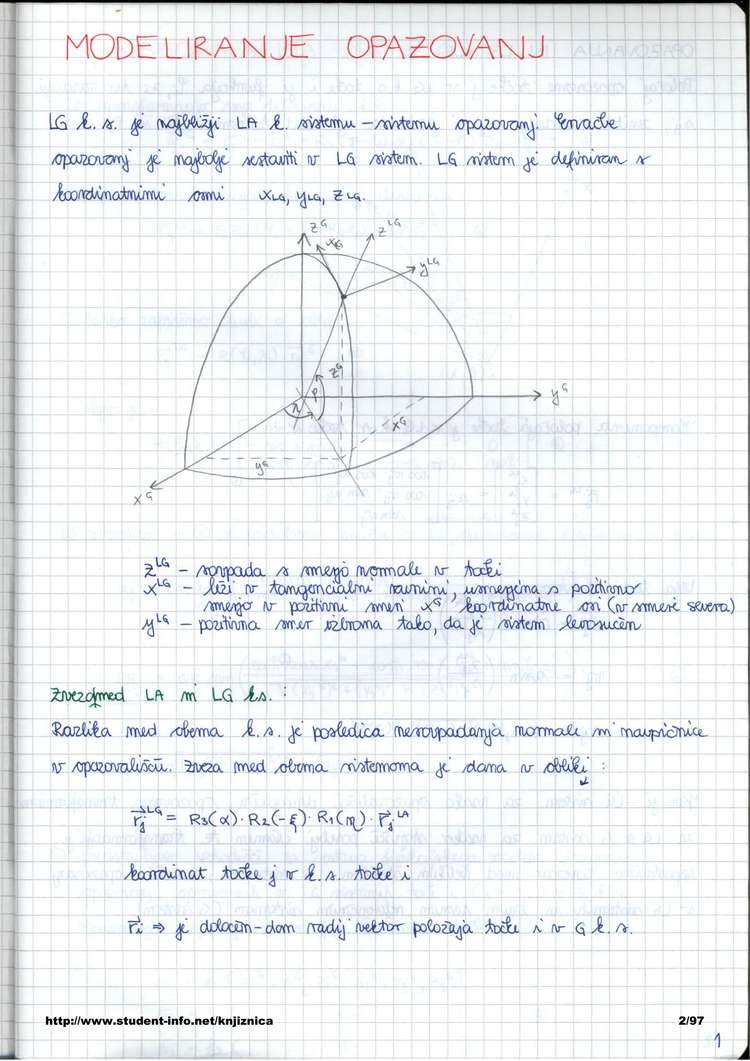 MODELIRANJE OPAZOVANJ
LG k. s. je najbližji LA k. sistemu – sistemu opazovanj. Enačbe
opazovanj je najbolje sestaviti v LG sistem. LG sistem je definiran s
koordinatnimi osmi xLG, yLG, zLG.
z^G
x^LG
z^LG
y^LG
z^G
φ
λ
y^G
x^G
y^G
x^G
z^LG – sovpada s smerjo normale v točki
x^LG – leži v tangencialni ravnini, usmerjena s pozitivno
smerjo v pozitivni smeri x^G koordinatne osi (v smeri severa)
y^LG – pozitivna smer izbrana tako, da je sistem levosučen
Zveza med LA in LG ks. :
Razlika med obema k. s. je posledica nesovpadanja normale in navpičnice
v opazovališču. Zveza med obema sistemoma je dana v obliki :
r⃗j^LG = R3(α) · R2(-ξ) · R1(η) · r⃗j^LA
koordinat točke j v k. s. točke i
r⃗i ⇒ je določen - dan radij vektor položaja točke i v G k. s.
http://www.student-info.net/knjiznica
2/97
1